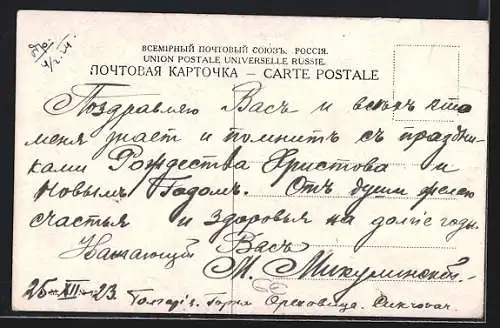 4/2.24
ВСЕМІРНЫЙ ПОЧТОВЫЙ СОЮЗЪ. РОССІЯ.
UNION POSTALE UNIVERSELLE RUSSIE.
ПОЧТОВАЯ КАРТОЧКА — CARTE POSTALE
Поздравляю Васъ и всѣхъ кто
меня знает и помнитъ съ праздни-
ками Рождества Христова и
Новымъ Годомъ. Отъ души желаю
счастья и здоровья на долгіе годы.
Уважающій Васъ
М. Микулинскій.
25-XII-23. Горня Ореховица.